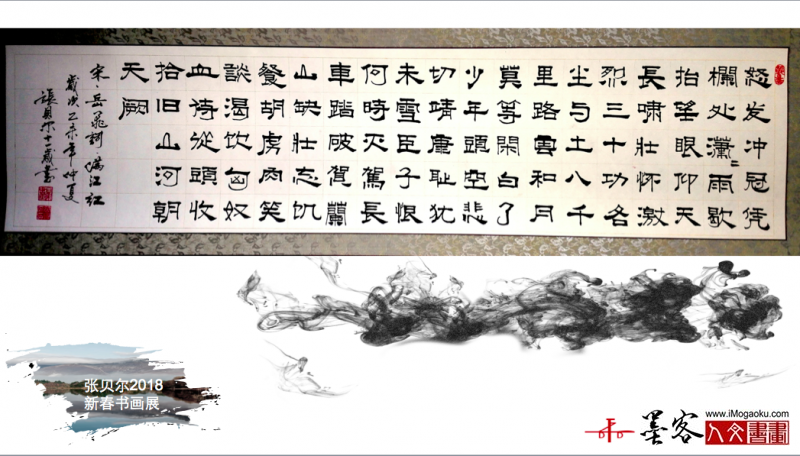 怒发冲冠凭
欄处瀟〻雨歇
抬望眼仰天
長嘯壮怀激
烈三十功名
尘与土八千
里路雲和月
莫等閑白了
少年頭空悲
切靖康耻犹
未雪臣子恨
何時灭駕長
車踏破賀蘭
山缺壮志饥
餐胡虏肉笑
談渴饮匈奴
血待從頭收
拾旧山河朝
天阙
宋、岳飛詞 满江红
歲次乙未年仲夏
張貝尔十一歲書
张贝尔2018
新春书画展
墨客
www.iMogaoku.com
人文書畫